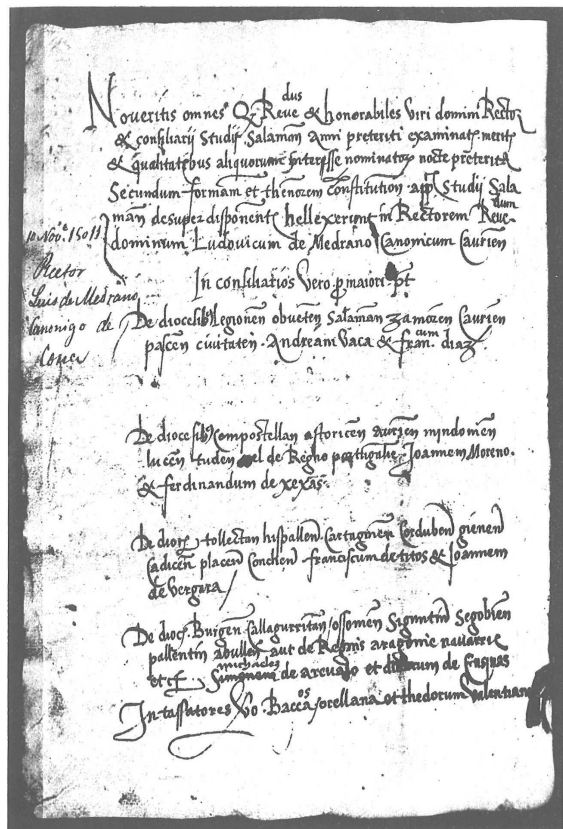 Noveritis omnes Q Reve dus & honorabiles Viri domini Rector
& consiliarij Studij Salamañ Anni preteriti examinatis meritis
& qualitatibus aliquorum interesse nominatoꝝ nocte preterita
Secundum formam et thenorem Constitution appl Studij Sala
mañ desuper disponent hellexerunt in Rectorem Reve dum
dominum Ludovicum de Medrano Canonicum Caurien
10 Nove 1511
Rector
Luis de Medrano
Canonigo de
Coria
In consiliarios Vero p maiori pt
De diocesibꝫ Legionen oveten Salaman Zamoren Caurien
pacen civitaten. Andream Vaca & fran cum diaz
De diocesibꝫ Compostellan astoricen aurien mindonien
lucen tuden vel de Regno portugalie. Joannem Moreno.
& ferdinandum de xexas.
De dioc tollectan hispallen Cartaginen Corduben gienen
Cadicen placen Conchen franciscum de titos & Joannem
de Vergara
De dioc Burgen Callagurritan ossomen Siguntin Segobien
pallentin abullen aut de Regnis aragonie navarrie
michaelem de arevalo et de
In tassatores Vo. Baccos orellana et thedorum Valentian